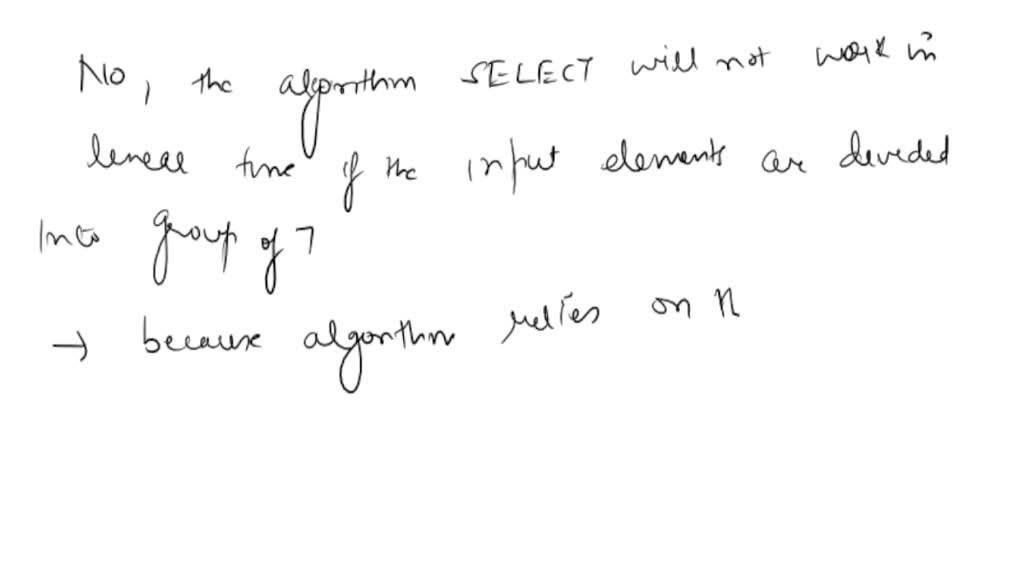 No, the algorithm SELECT will not work in
lenear time if the input elements are devided
Into group of 7
→ because algorithm relies on n